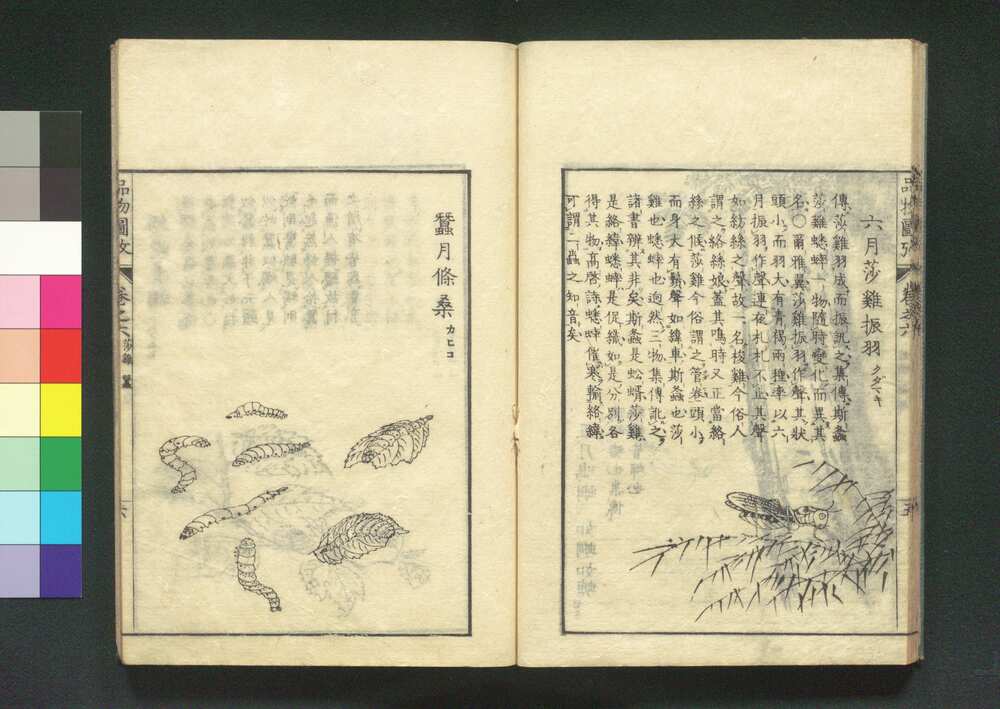 六月莎雞振羽 クダマキ
傳、莎雞羽成而振訊之、集傳、斯螽
莎雞蟋蟀一物隨時變化而異其
名、〇爾雅翼、莎雞振羽作聲、其狀
頭小、而羽大、有青褐兩種、率以六
月振羽作聲、連夜札札不止、其聲
如紡絲之聲、故一名梭雞、今俗人
謂之絡絲娘、蓋其鳴時又正當絡
絲之候、莎雞今俗謂之管卷、頭小、
而身大有鬚、聲如緯車、斯螽也、莎
雞也、蟋蟀也、迥然三物、集傳訛之、
諸書辨其非矣、斯螽是蚣蝑、莎雞
是絡緯、蟋蟀是促織、如是分別各
得其物、高啓詩、蟋蟀催寒輸絡緯、
可謂一蟲之知音矣
品物圖攷
卷之六
五
蠶月條桑 カヒコ
品物圖攷
卷之六
莎雞
蠶
六